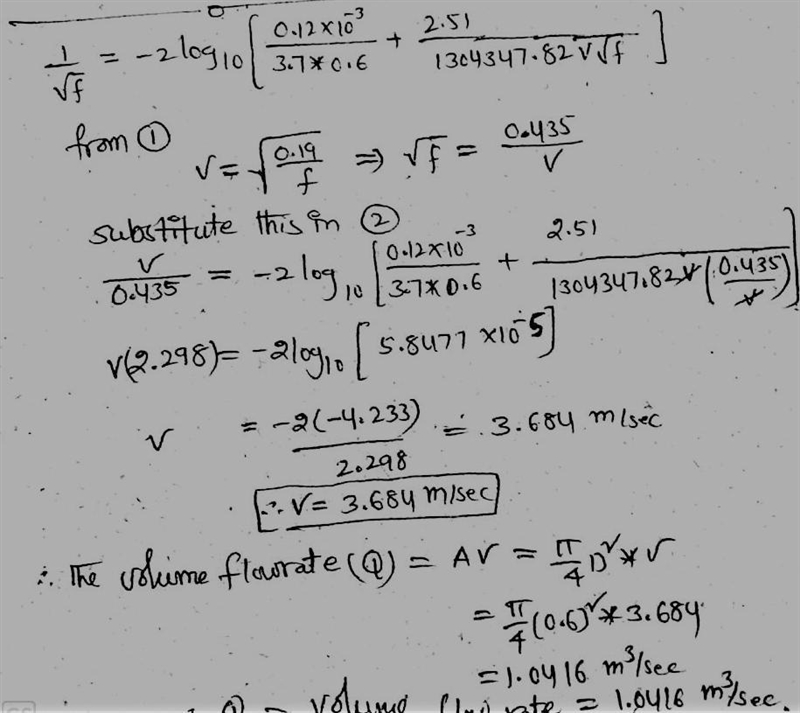 1/√f = -2log10[0.12×10^-3/3.7*0.6 + 2.51/1304347.82 V√f]
from ①
V = √(0.19/f) ⇒ √f = 0.435/V
substitute this in ②
V/0.435 = -2log10[0.12×10^-3/3.7*0.6 + 2.51/1304347.82V(0.435/V)]
V(2.298) = -2log10[5.8477×10^-5]
V = -2(-4.233)/2.298 = 3.684 m/sec
∴ V = 3.684 m/sec
∴ The volume flowrate (Q) = AV = π/4 D² * V
= π/4 (0.6)² * 3.684
= 1.0416 m³/sec
volume rate = 1.0416 m³/sec.